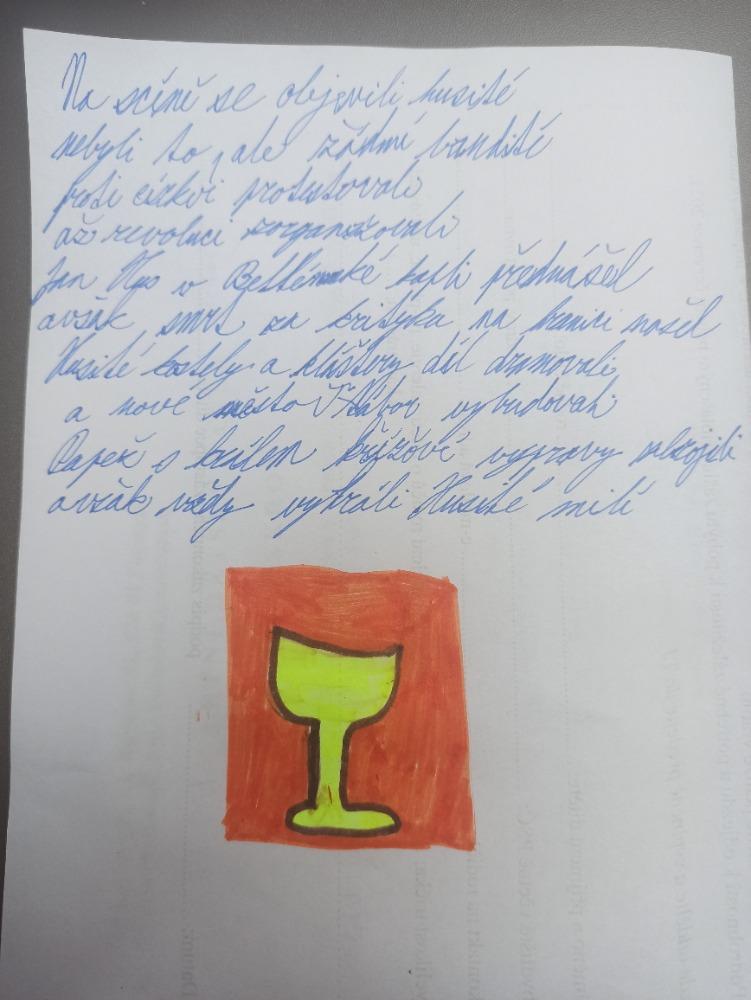 Na scéně se objevili husité
nebyli to, ale žádní bandité
proti církvi protestovali
až revoluci zorganizovali
Jan Hus v Betlémské kapli přednášel
avšak smrt za krityku na hranici našel
Husité kostely a kláštery dál drancovali
a nové město Tábor vybudovali
Papež s králem křížové výpravy
avšak vždy vyhráli Husité milí